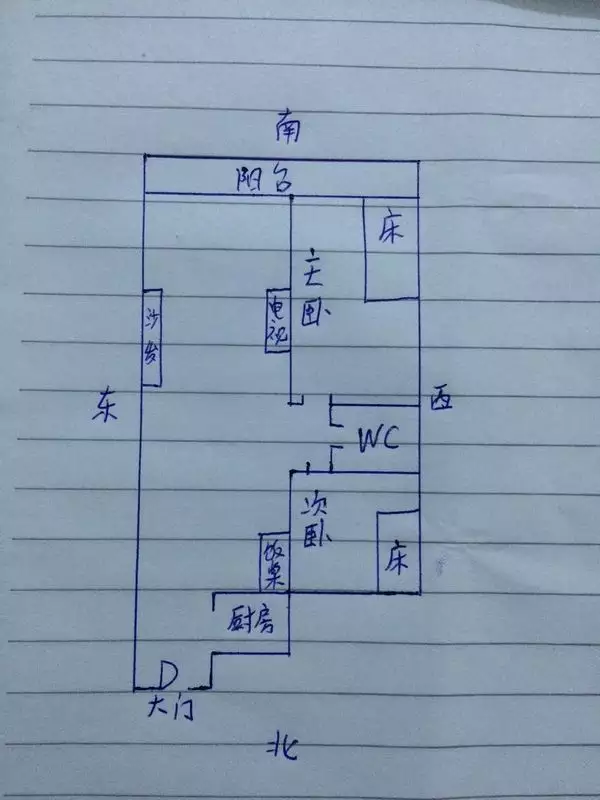 南
阳台
床
主卧
电视
沙发
东
西
WC
次卧
床
饭桌
厨房
大门
北